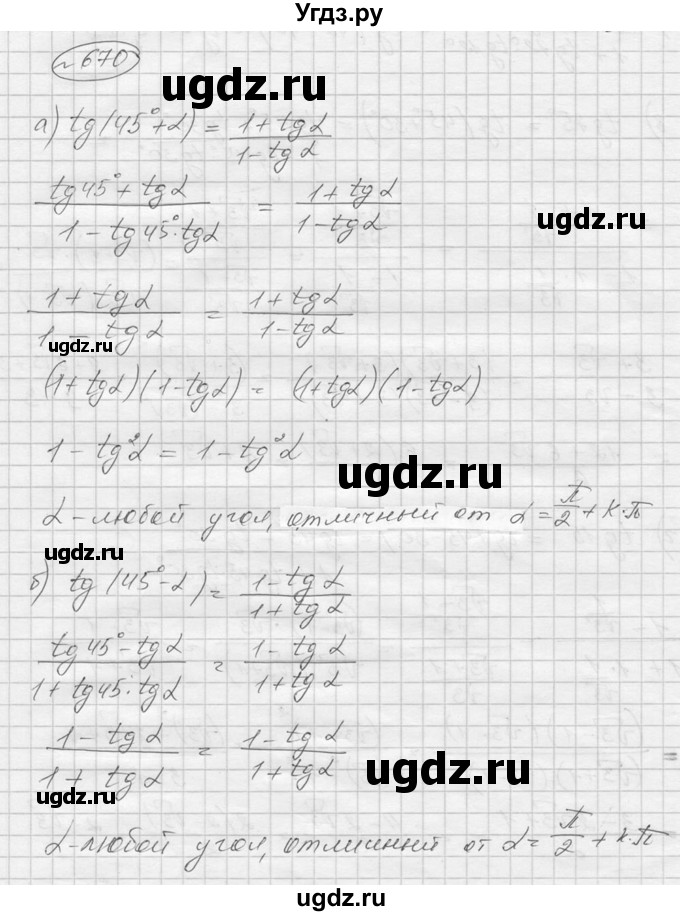 Угдз.ру
№670
ugdz.ru
а) tg(45°+α) = (1+tgα)/(1-tgα)
(tg45°+tgα)/(1-tg45°·tgα) = (1+tgα)/(1-tgα)
ugdz.ru
(1+tgα)/(1-tgα) = (1+tgα)/(1-tgα)
ugdz.ru
(1+tgα)(1-tgα) = (1+tgα)(1-tgα)
1-tg²α = 1-tg²α
ugdz.ru
α-любой угол, отличный от α = π/2 + K·π
ugdz.ru
б) tg(45°-α) = (1-tgα)/(1+tgα)
(tg45°-tgα)/(1+tg45·tgα) = (1-tgα)/(1+tgα)
(1-tgα)/(1+tgα) = (1-tgα)/(1+tgα)
ugdz.ru
ugdz.ru
α-любой угол, отличний от α = π/2 + K·π
ugdz.ru